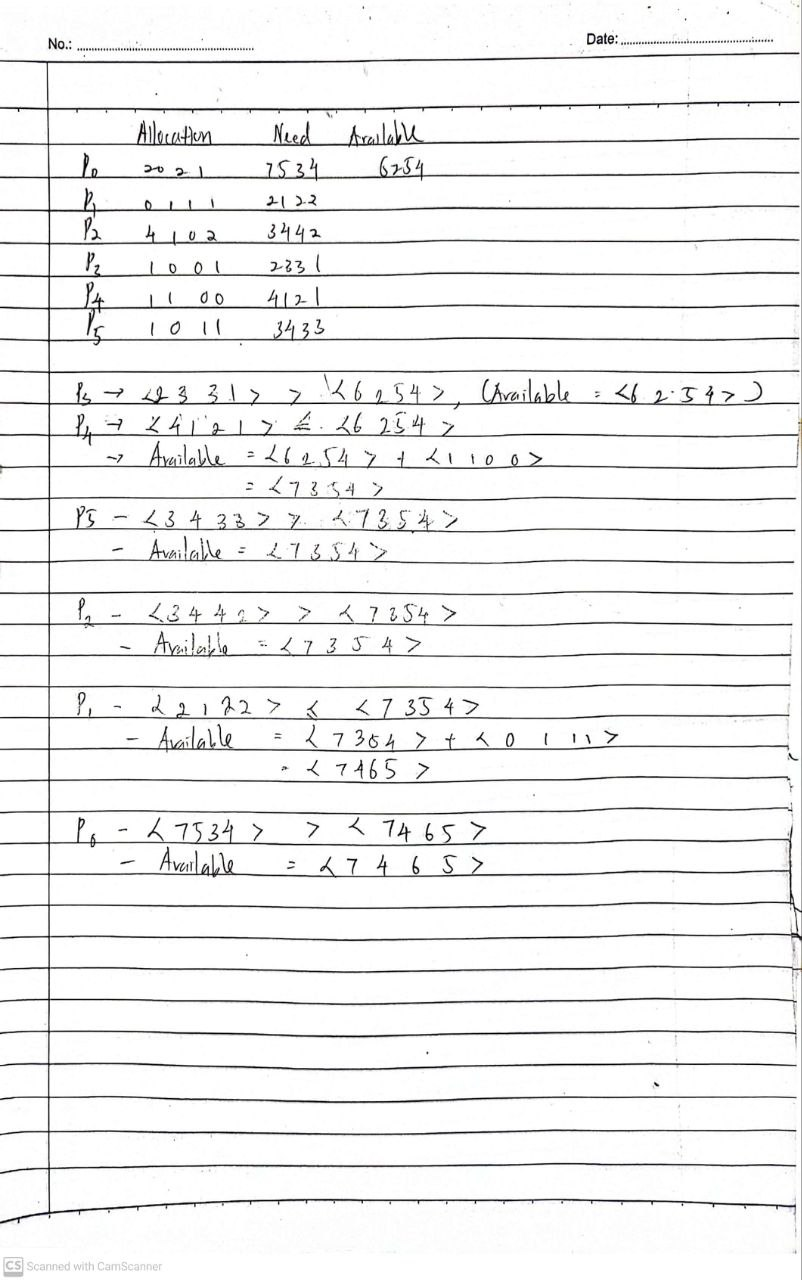 No.: Date:
Allocation Need Available
P0 2021 7534 6254
P1 0111 2122
P2 4102 3442
P3 1001 2331
P4 1100 4121
P5 1011 3433
P3 → <2331> > <6254>, (Available = <6254>)
P4 → <4121> ≤ <6254>
→ Available = <6254> + <1100>
= <7354>
P5 - <3433> > <7354>
- Available = <7354>
P2 - <3442> > <7354>
- Available = <7354>
P1 - <2122> < <7354>
- Available = <7354> + <0111>
= <7465>
P0 - <7534> > <7465>
- Available = <7465>
CS Scanned with CamScanner